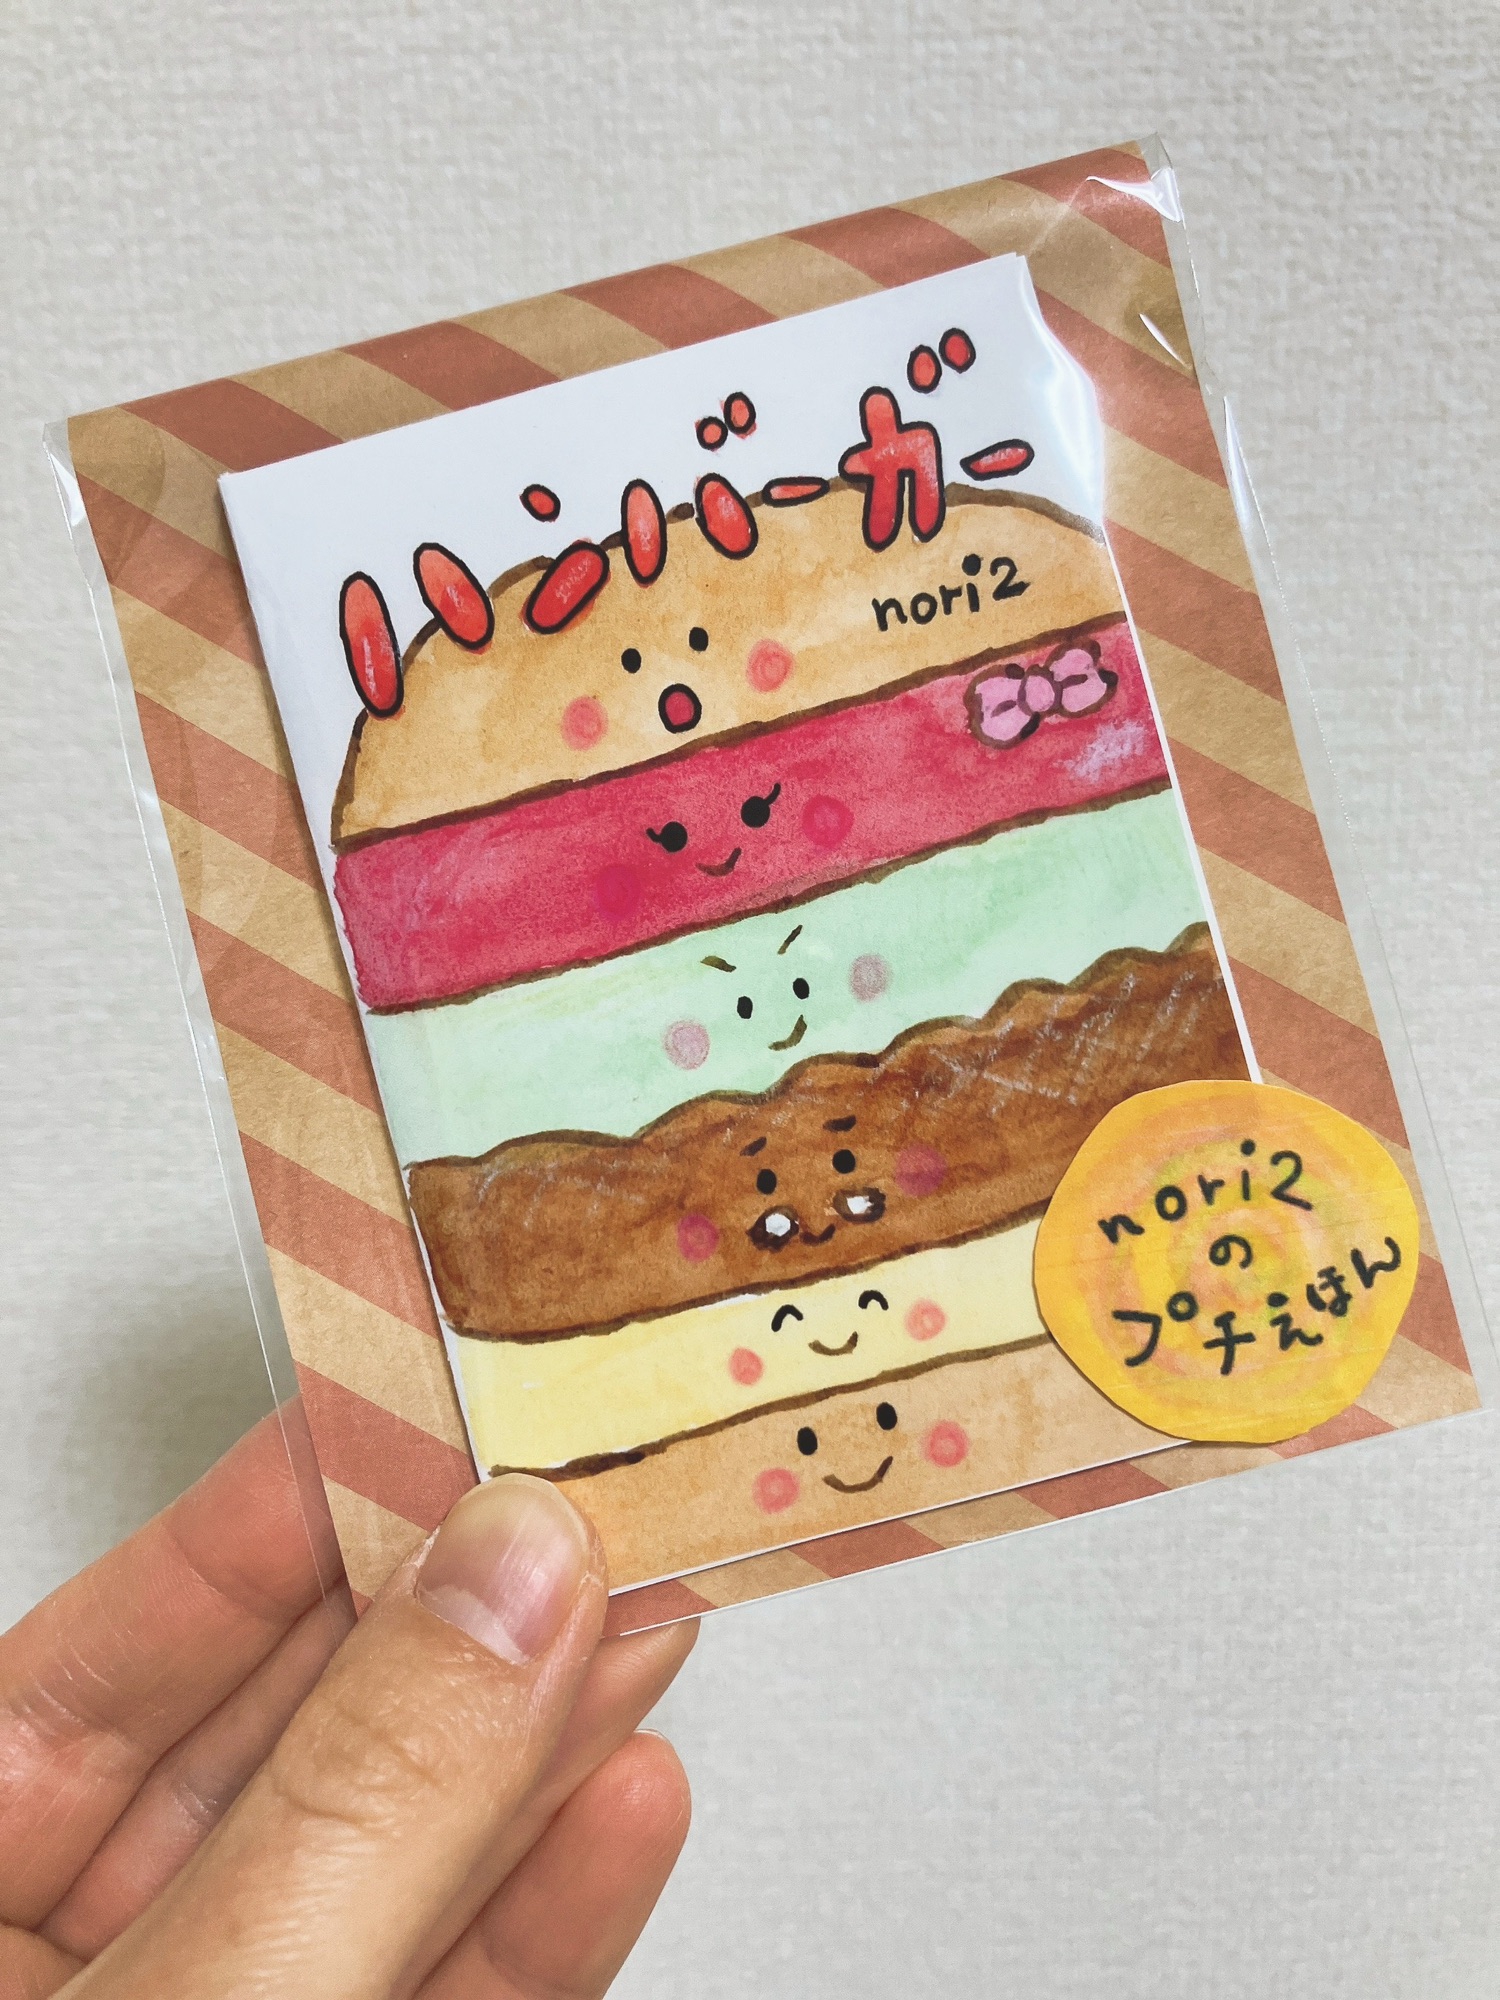 ハンバーガー
nori2
nori2
の
プチえほん